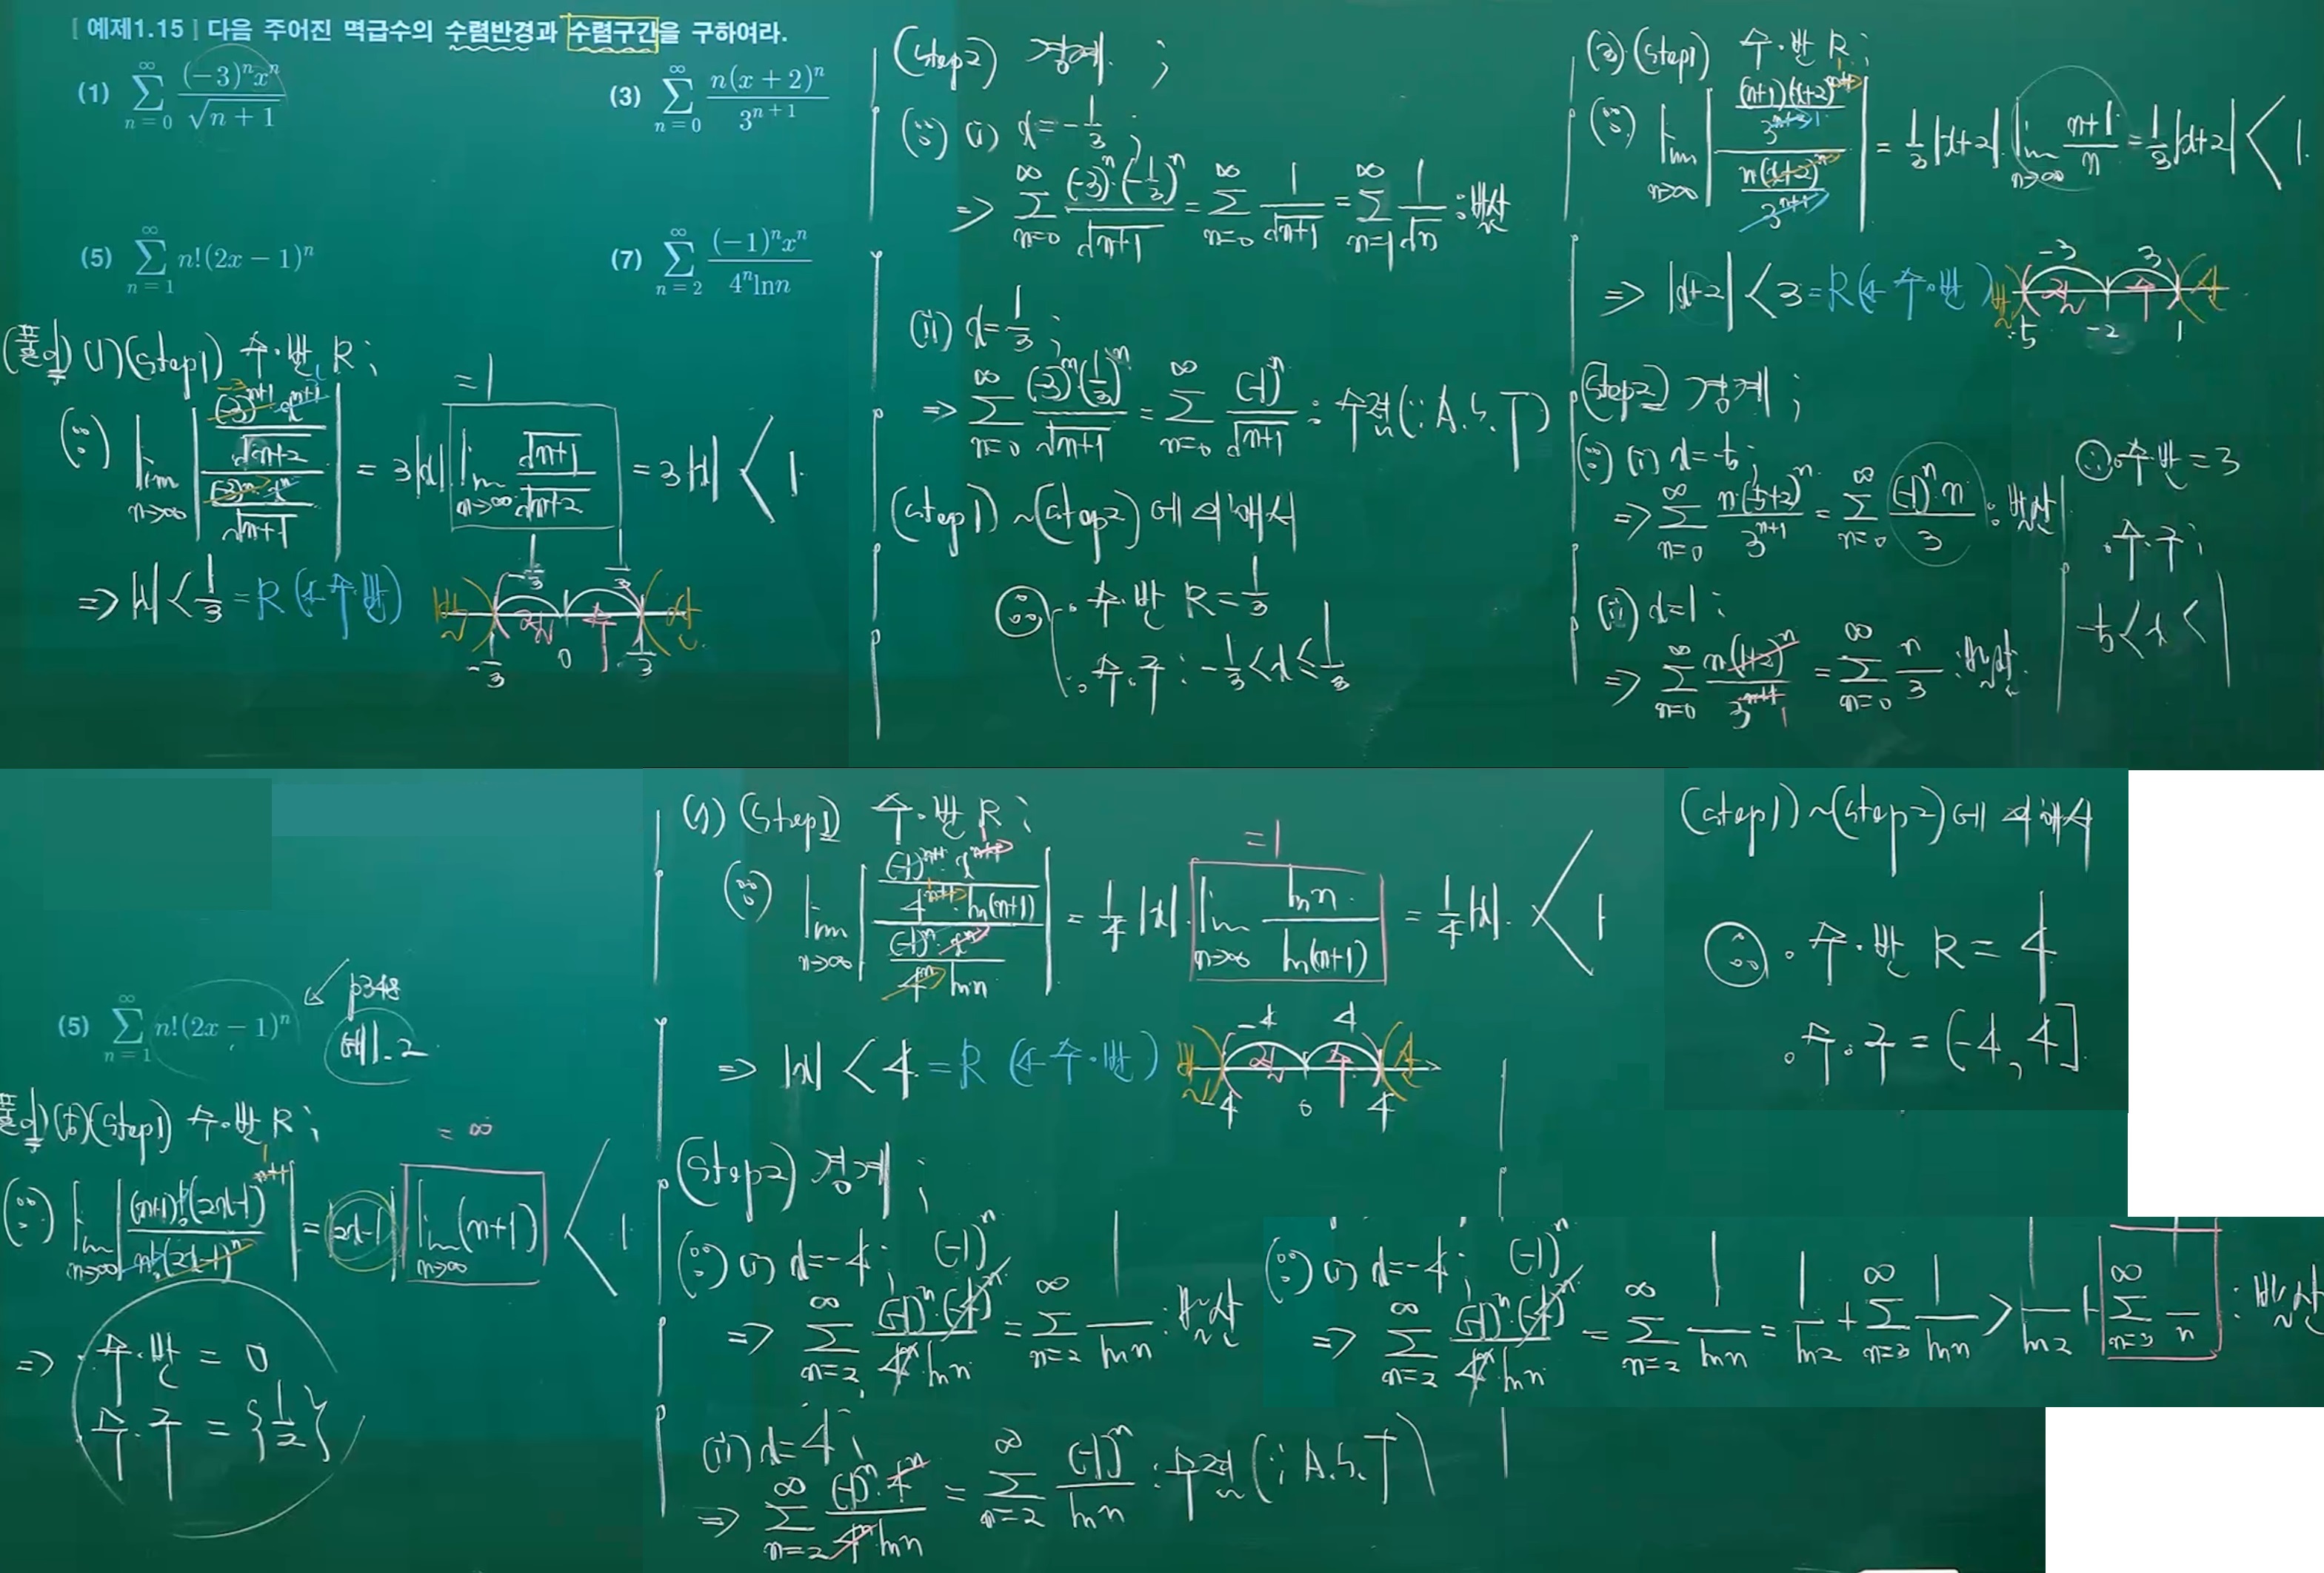 [ 예제1.15 ] 다음 주어진 멱급수의 수렴반경과 수렴구간을 구하여라.
(1) \sum_{n=0}^{∞} \frac{(-3)^n x^n}{\sqrt{n+1}}
(3) \sum_{n=0}^{∞} \frac{n(x+2)^n}{3^{n+1}}
(5) \sum_{n=1}^{∞} n!(2x-1)^n
(7) \sum_{n=2}^{∞} \frac{(-1)^n x^n}{4^n \ln n}
(풀이) (1) (step1) 수·반 R ;
=1
(∵) \lim_{n→∞} | \frac{\frac{(-3)^{n+1} x^{n+1}}{\sqrt{n+2}}}{\frac{(-3)^n x^n}{\sqrt{n+1}}} | = 3|x| \lim_{n→∞} \frac{\sqrt{n+1}}{\sqrt{n+2}} = 3|x| < 1
⇒ |x| < \frac{1}{3} = R (← 수·반)
-\frac{1}{3} 0 \frac{1}{3}
(step2) 경계 ;
(∵) (i) x = -\frac{1}{3} ;
⇒ \sum_{n=0}^{∞} \frac{(-3)^n·(-\frac{1}{3})^n}{\sqrt{n+1}} = \sum_{n=0}^{∞} \frac{1}{\sqrt{n+1}} = \sum_{n=1}^{∞} \frac{1}{\sqrt{n}} : 발산
(ii) x = \frac{1}{3} ;
⇒ \sum_{n=0}^{∞} \frac{(-3)^n (\frac{1}{3})^n}{\sqrt{n+1}} = \sum_{n=0}^{∞} \frac{(-1)^n}{\sqrt{n+1}} : 수렴 (∵ A.S.T)
(step1) ~ (step2) 에 의해서
∴ · 수·반 R = \frac{1}{3}
· 수·구 : -\frac{1}{3} < x ≤ \frac{1}{3}
(3) (step1) 수·반 R ;
(∵) \lim_{n→∞} | \frac{\frac{(n+1)(x+2)^{n+1}}{3^{n+2}}}{\frac{n(x+2)^n}{3^{n+1}}} | = \frac{1}{3}|x+2| \lim_{n→∞} \frac{n+1}{n} = \frac{1}{3}|x+2| < 1
⇒ |x+2| < 3 = R (← 수·반)
-3 3
-5 -2 1
(step2) 경계 ;
(∵) (i) x = -5 ;
⇒ \sum_{n=0}^{∞} \frac{n(-5+2)^n}{3^{n+1}} = \sum_{n=0}^{∞} \frac{(-1)^n n}{3} : 발산
(ii) x = 1 ;
⇒ \sum_{n=0}^{∞} \frac{n(1+2)^n}{3^{n+1}} = \sum_{n=0}^{∞} \frac{n}{3} : 발산
∴ · 수·반 = 3
· 수·구 ;
-5 < x < 1
(5) \sum_{n=1}^{∞} n!(2x-1)^n
p348
예1.2
(풀이) (5) (step1) 수·반 R ;
= ∞
(∵) \lim_{n→∞} | \frac{(n+1)!(2x-1)^{n+1}}{n!(2x-1)^n} | = |2x-1| \lim_{n→∞} (n+1) < 1
⇒ · 수·반 = 0
· 수·구 = {\frac{1}{2}}
(7) (step1) 수·반 R ;
=1
(∵) \lim_{n→∞} | \frac{\frac{(-1)^{n+1}·x^{n+1}}{4^{n+1}·\ln(n+1)}}{\frac{(-1)^n·x^n}{4^n \ln n}} | = \frac{1}{4}|x|· \lim_{n→∞} \frac{\ln n}{\ln(n+1)} = \frac{1}{4}|x| < 1
⇒ |x| < 4 = R (← 수·반)
-4 4
-4 0 4
(step2) 경계 ;
(∵) (i) x = -4 ; (-1)^n
⇒ \sum_{n=2}^{∞} \frac{(-1)^n·(-4)^n}{4^n \ln n} = \sum_{n=2}^{∞} \frac{1}{\ln n} : 발산
(∵) (i) x = -4 ; (-1)^n
⇒ \sum_{n=2}^{∞} \frac{(-1)^n·(-4)^n}{4^n \ln n} = \sum_{n=2}^{∞} \frac{1}{\ln n} = \frac{1}{\ln 2} + \sum_{n=3}^{∞} \frac{1}{\ln n} > \frac{1}{\ln 2} + \sum_{n=3}^{∞} \frac{1}{n} : 발산
(ii) x = 4 ;
⇒ \sum_{n=2}^{∞} \frac{(-1)^n·4^n}{4^n \ln n} = \sum_{n=2}^{∞} \frac{(-1)^n}{\ln n} : 수렴 (∵ A.S.T)
(step1) ~ (step2) 에 의해서
∴ · 수·반 R = 4
· 수·구 = (-4, 4]